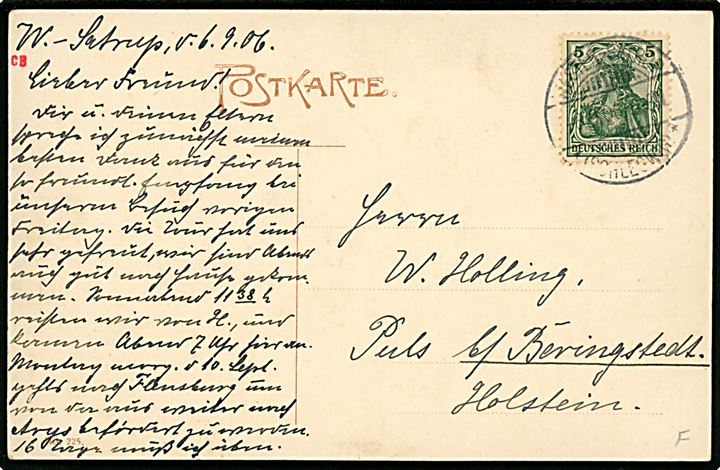 W.-Satrup, d. 6.9.06.
CB
Lieber Freund!
POSTKARTE.
Dir u. deinen Eltern
spreche ich zunächst meinen
besten Dank aus für den
so freundl. Empfang bei
unserm Besuch vorigen
Freitag. Die Tour hat uns
sehr gefreut, wir sind Abends
auch gut nach Hause gekom-
men. Sonnabend 11 38 h
reisten wir von H., und
kamen Abend 7 Uhr hier an.
Montag morg. d 10. Sept.
gehts nach Flensburg um
von da aus weiter nach
Arys befördert zu werden.
16 Tage muß ich üben.
225.
5 5
DEUTSCHES REICH
(SCHLESWIG)
Herrn
W. Holling,
Puls b/ Beringstedt.
Holstein.
F